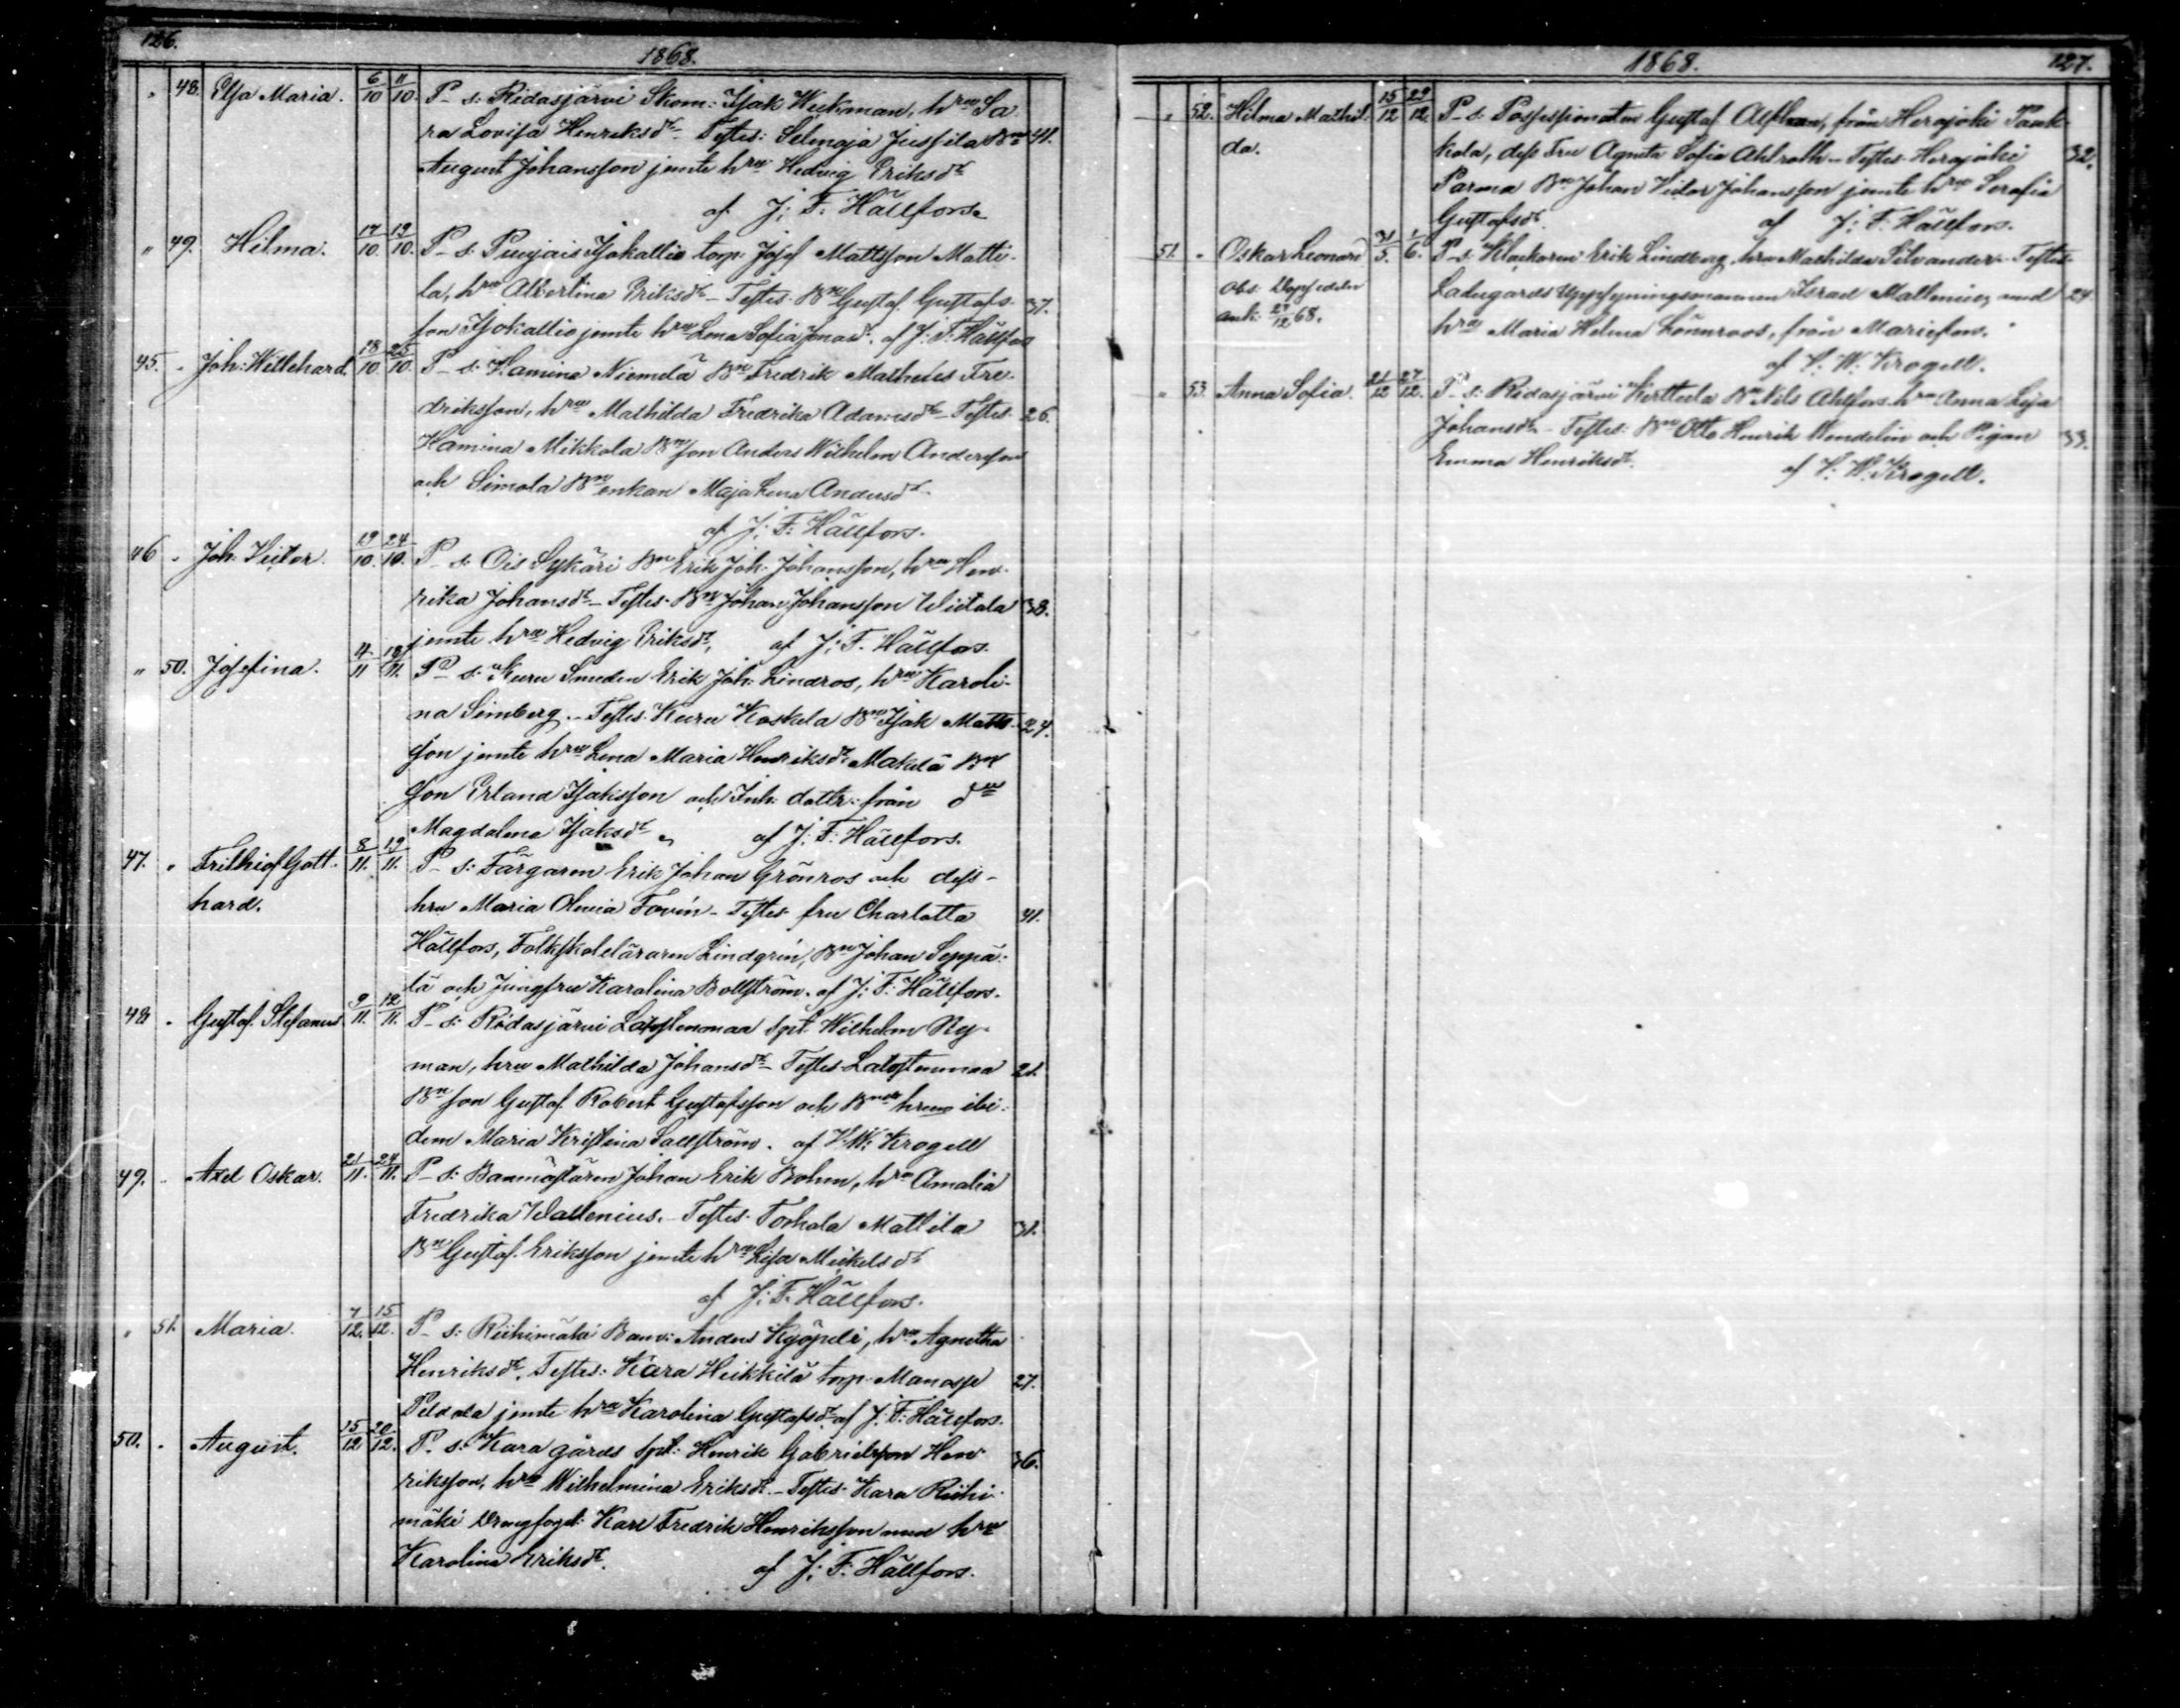 126.
1868.
" 48. Elsa Maria. 6/10 11/10. P_ s: Ridasjärvi Skom: Isak Weckman, hru Sa
ra Lovisa Henriksdr Testes: Selmaja Jussila Bn 41.
August Johansson jemte hru Hedvig Eriksdr
af J: F: Hällfors
" 49. Hilma. 17/10. 19/10. P_ s: Isokallio torp: Josef Mattsson Matti-
la, hru Albertina Eriksdr – Testes: Bn Gustaf Gustafs- 37.
son Isokallio jemte hru Lena Sofia Jonasdr. af J: F: Hällfors
45. " Joh: Willehard. 18/10. 25/10. P_ s: Hamina Niemelä Bn Fredrik Matheus Fre-
driksson, hru Mathilda Fredrika Adamsdr – Testes: 26.
Hamina Mikkola Bn son Anders Wilhelm Andersson
och Simola Bn enkan Maja Lena Andersdr
af J: F: Hällfors.
46 " Joh. Victor. 19/10. 24/10. P_ s: Ois Sykäri Bn Erik Joh: Johansson, hru Hen-
rika Johansdr – Testes: Bn Johan Johansson Uitala 38.
jemte hru Hedvig Eriksdr, af J: F. Hällfors.
" 50. Josefina. 4/11 18/11. P_ s: Kuru Smeden Erik Joh: Lindros, hru Karoli-
na Simberg. – Testes: Kuru Koskela Bn Isak Matts- 24.
son jemte hru Lena Maria Henriksdr Mäkelä Bn
son Erland Isaksson och Inh: dottr: från
Magdalena Isaksdr af J: F: Hällfors.
47. " Frithiof Gott- 8/11. 19/11. P_ s: Färgaren Erik Johan Grönros och dess
hard. hru Maria Olivia Fovin – Testes: fru Charlotta 41.
Hällfors, Folkskoleläraren Lindgrén, Bn Johan Seppä-
lä och Jungfru Karolina Bollström. af J: F: Hällfors.
48 " Gustaf Stefanus 9/11. 12/11. P_ s: Ridasjärvi Latostenmaa Spt: Wilhelm Ny-
man, hru Mathilda Johansdr – Testes: Latostenmaa 21.
Bn son Gustaf Robert Gustafsson och Bns hru ibi-
dem Maria Kristina Sallström. af V: W: Krogell
49. " Axel Oskar. 21/11. 24/11. P_ s: Banmästaren Johan Erik Bohm, hru Amalia
Fredrika Wallenius. – Testes: Torhola Mattila 31.
Bn Gustaf Eriksson jemte hru Lisa Mickelsdr
af J: F: Hällfors.
" 51. Maria. 7/12. 15/12. P_ s: Riihimäki Banv: Anders Kyöpeli, hru Agnetha
Henriksdr, Testes: Kara Heikkilä torp: Manasse 27.
Peldola jemte hru Karolina Gustafsdr af J: F: Hällfors.
50. " August. 15/12 20/12. P. s: Kara gårds spt: Henrik Gabrielsson Hen-
riksson, hru Wilhelmina Eriksdr – Testes: Kara Riihi- 36.
mäki Drengfogd: Karl Fredrik Henriksson med hru
Karolina Eriksdr. af J: F: Hällfors.
1868. 127.
" 52. Hilma Mathil- 15/12 29/12. P_ s: Possessionaten Gustaf från Herajoki Pank-
da. kola, dess Fru Agneta Sofia Ahlroth – Testes: Herajoki 32.
Parma Bn Johan Victor Johansson jemte hru Serafia
Gustafsdr. af J: F: Hällfors.
51. " Oskar Leonard 31/5. 1/6. P_ s: Klockaren Erik Lindberg, hru Mathilda Silvander – Testes:
Obs. Dopsedeln Ladugårds Uppsyningsmannen Israel Mallenius, med 24.
ank: 27/12 68. hru Maria Helena Lönnroos, från Mariefors.
af V: W: Krogell.
" 53. Anna Sofia. 21/12 27/12. P_ s: Ridasjärvi Kerttula Bn Nils Ahlfors hru Anna Lisa
Johansdr – Testes: Bn Otto Henrik Wendelin och Pigan 33.
Emma Henriksdr. af V: W: Krogell.